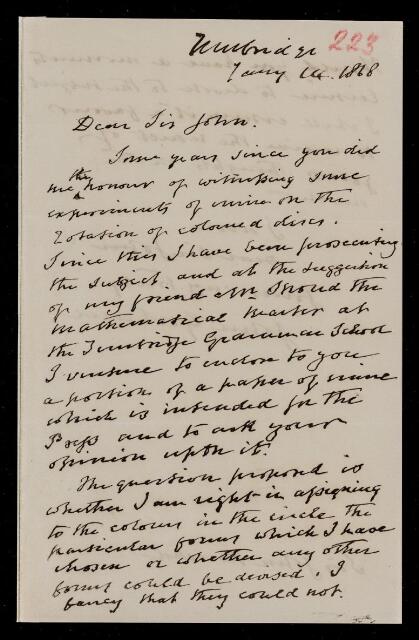 Tunbridge 223
Jany 14. 1868
Dear Sir John.
Some years since you did
me the honour of witnessing some
experiments of mine on the
Rotation of coloured discs.
Since this I have been prosecuting
the subject and at the suggestion
of my friend Mr the
Mathematical Master at
the Tunbridge Grammar School
I venture to enclose to you
a portion of a paper of mine
which is intended for the
Press and to ask your
opinion upon it.
The question proposed is
whether I am right in assigning
to the colours in the circle the
particular forms which I have
chosen or whether any other
forms could be devised. I
fancy that they could not.